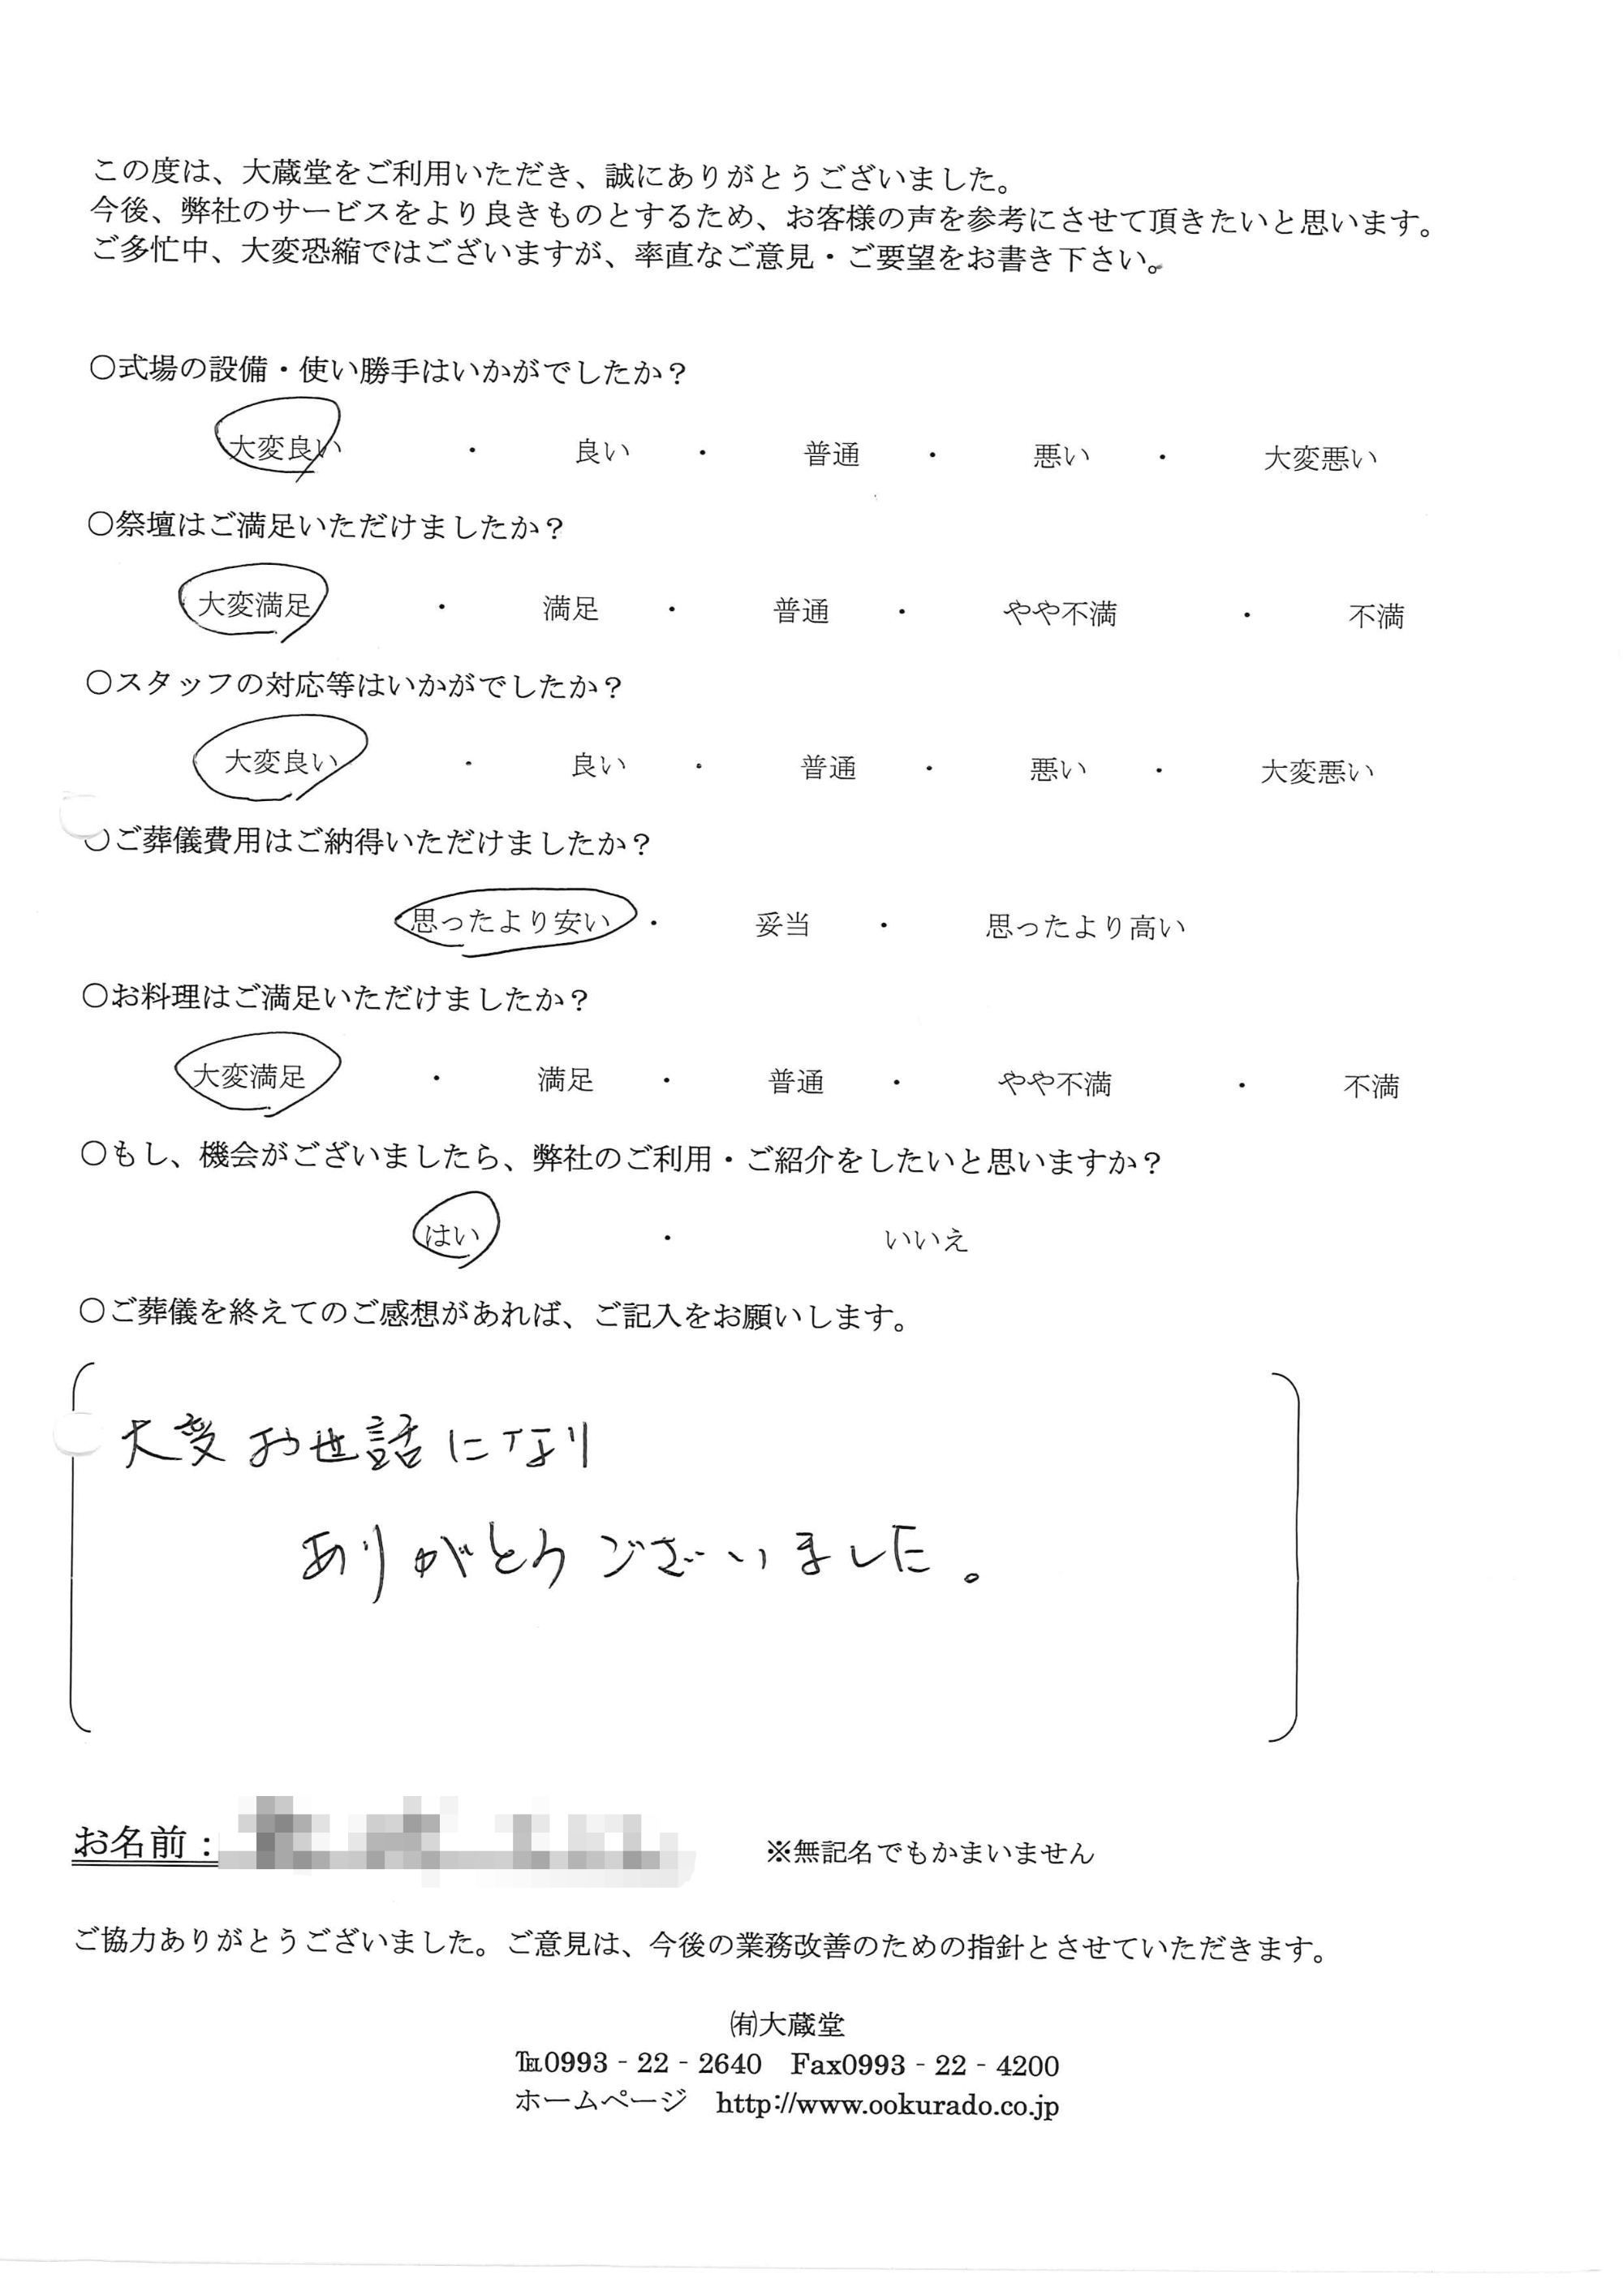 この度は、大蔵堂をご利用いただき、誠にありがとうございました。
今後、弊社のサービスをより良きものとするため、お客様の声を参考にさせて頂きたいと思います。
ご多忙中、大変恐縮ではございますが、率直なご意見・ご要望をお書き下さい。
〇式場の設備・使い勝手はいかがでしたか？
大変良い ・ 良い ・ 普通 ・ 悪い ・ 大変悪い
〇祭壇はご満足いただけましたか？
大変満足 ・ 満足 ・ 普通 ・ やや不満 ・ 不満
〇スタッフの対応等はいかがでしたか？
大変良い ・ 良い ・ 普通 ・ 悪い ・ 大変悪い
〇ご葬儀費用はご納得いただけましたか？
思ったより安い ・ 妥当 ・ 思ったより高い
〇お料理はご満足いただけましたか？
大変満足 ・ 満足 ・ 普通 ・ やや不満 ・ 不満
〇もし、機会がございましたら、弊社のご利用・ご紹介をしたいと思いますか？
はい ・ いいえ
〇ご葬儀を終えてのご感想があれば、ご記入をお願いします。
大変お世話になり
ありがとうございました。
お名前： ※無記名でもかまいません
ご協力ありがとうございました。ご意見は、今後の業務改善のための指針とさせていただきます。
㈲大蔵堂
℡0993‐22‐2640 Fax0993‐22‐4200
ホームページ http://www.ookurado.co.jp